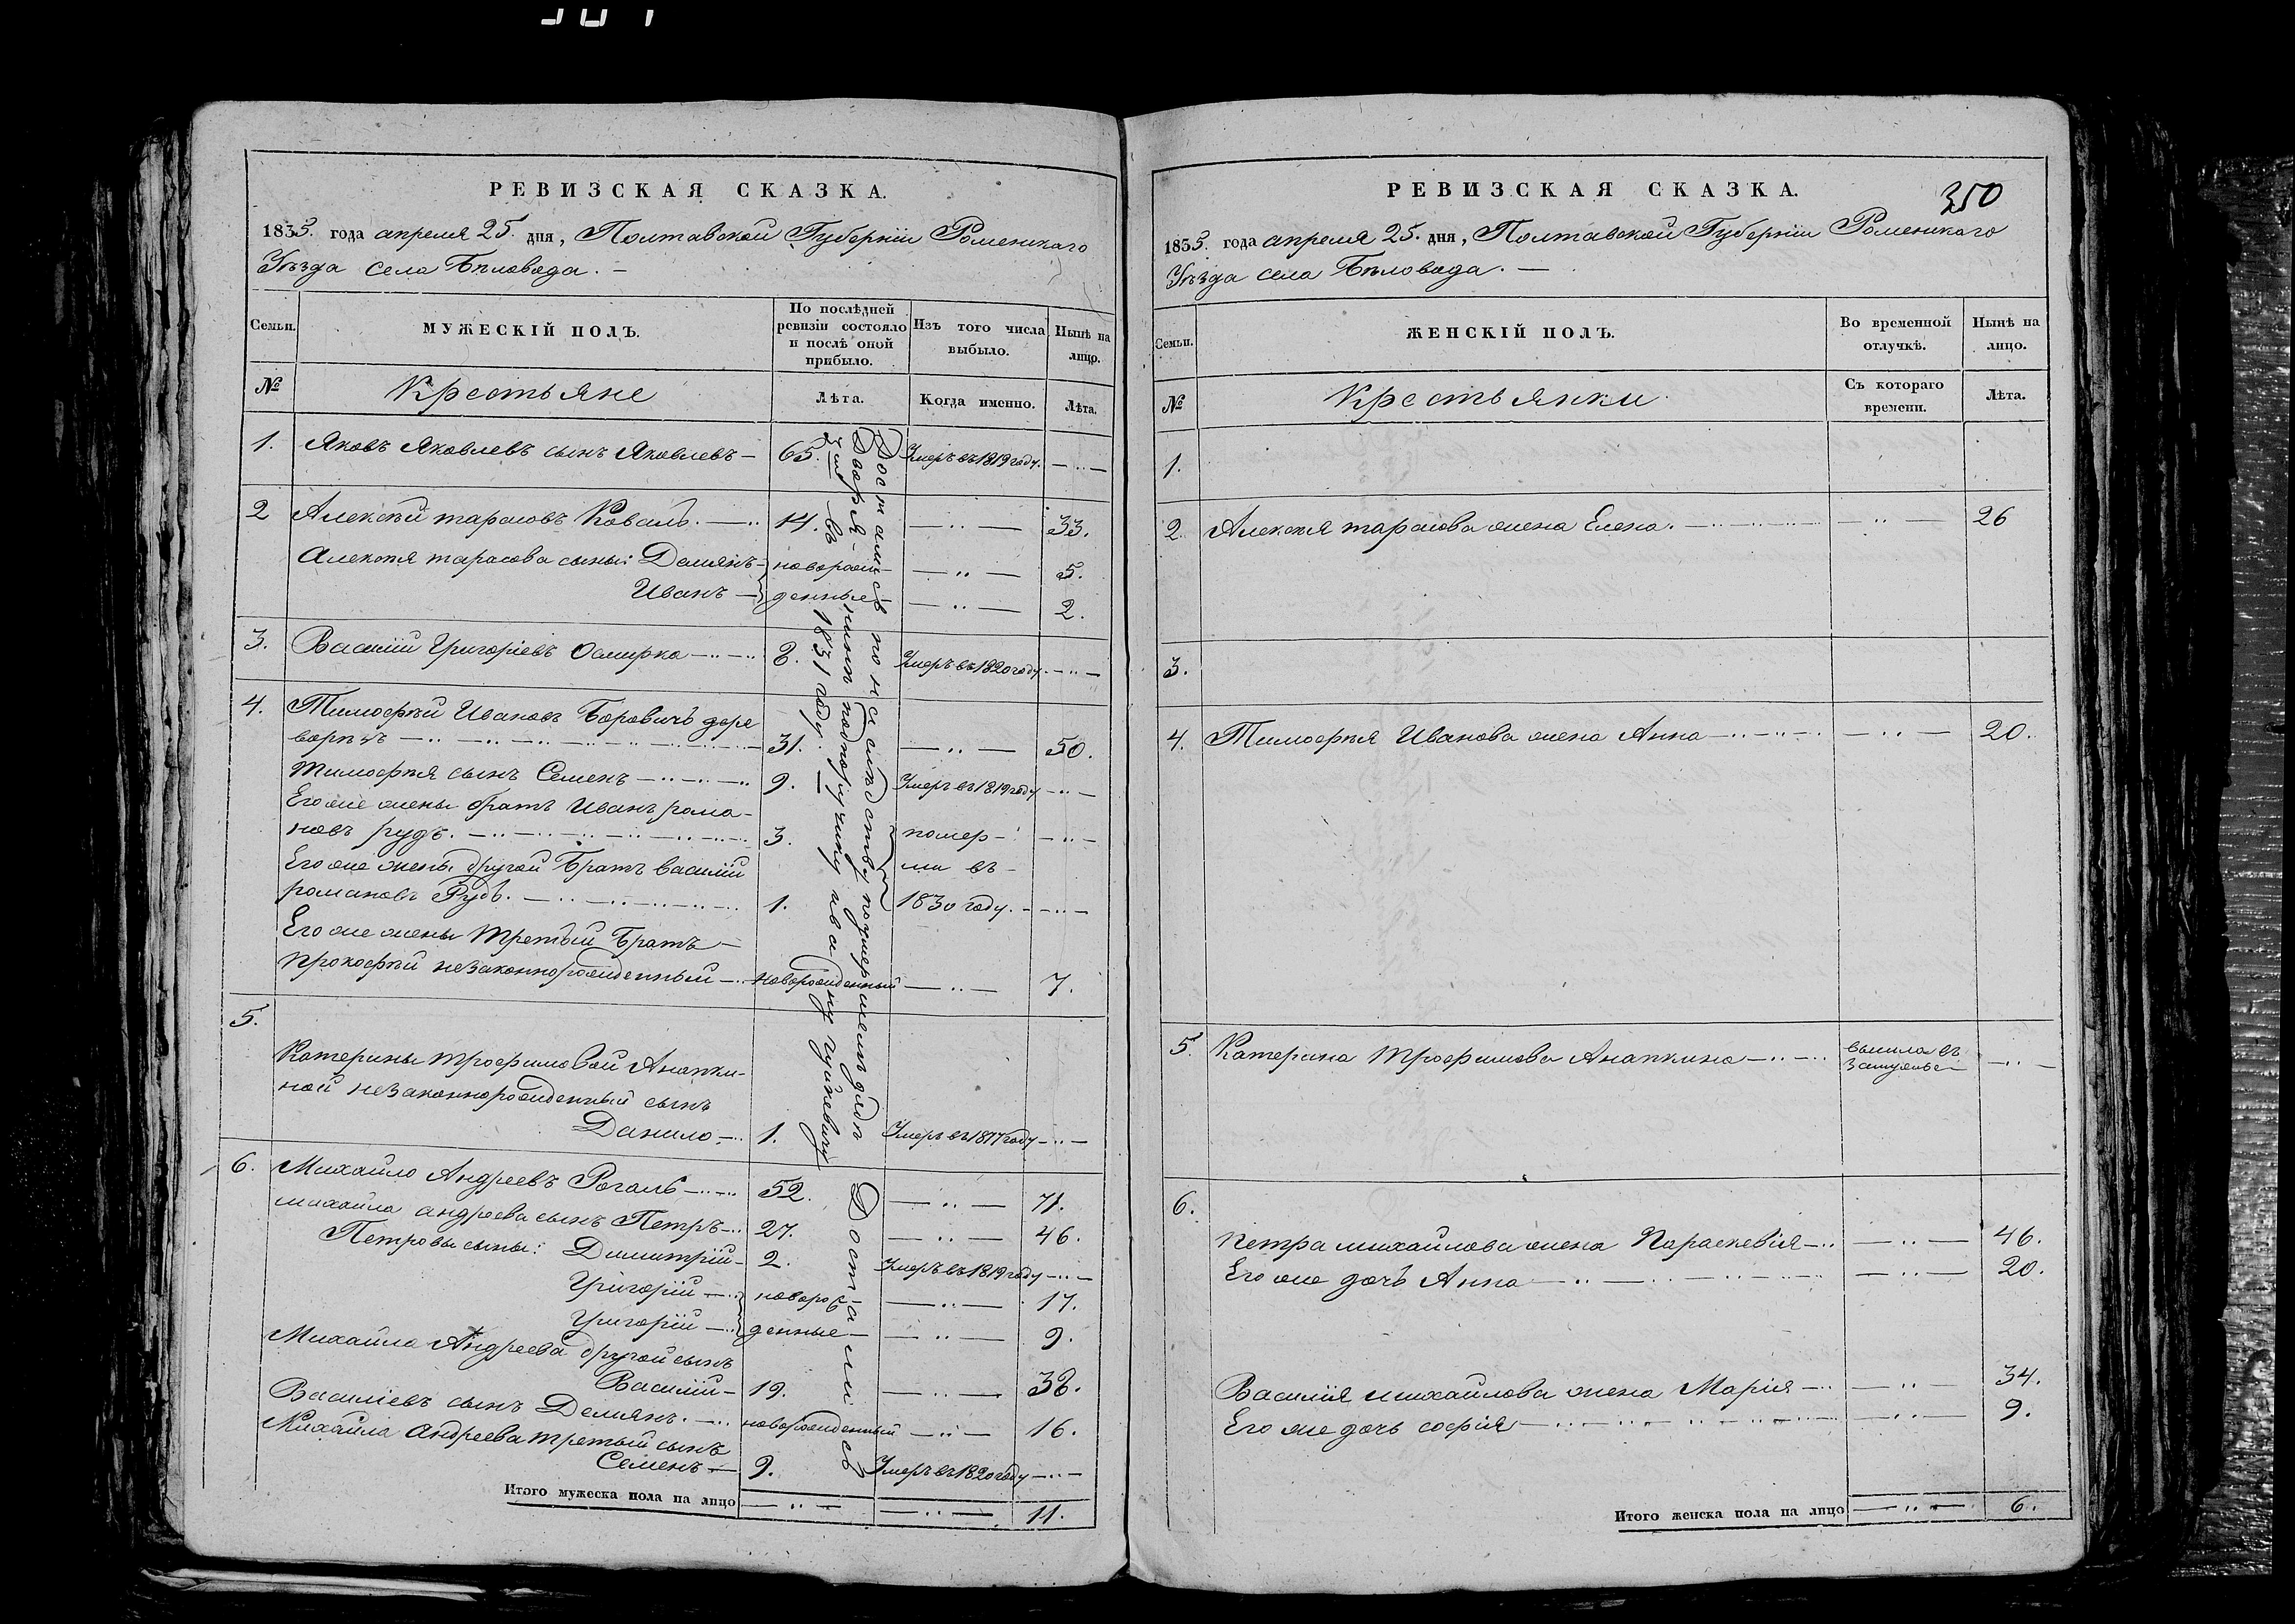 РЕВИЗСКАЯ СКАЗКА.
1835. года апреля 25. дня, Полтавской Губернiи Роменскаго
Уѣзда села Бѣловода. —
Семьи.
МУЖЕСКIЙ ПОЛЪ.
По послѣдней
ревизiи состояло
и послѣ оной
прибыло.
Изъ того числа
выбыло.
Нынѣ на
лицо.
№
Крестьяне
Лѣта.
Когда именно.
Лѣта.
1. Яковъ Яковлевъ сынъ Яковлевъ — 65. Умеръ въ 1819 году. — ·· —
2 Алексѣй тарасовъ Коваль. — ·· 14. — ·· — 33.
Алексѣя тарасова сыны: Демянъ — новорож- — ·· — 5.
Иванъ — денные — — ·· — 2.
3. Василiй Григорiевъ Осмирка — ·· — ·· 8. Умеръ въ 1820 году. — ·· —
4. Тимофѣй Ивановъ Боровичъ дере
ворѣзъ — ·· — ·· — 31. — ·· — 50.
Тимофѣя сынъ Семенъ — ·· — ·· 9. Умеръ въ 1819 году — ·· —
Его же жены братъ Иванъ рома-
новъ рудь. — ·· — ·· — 3. помер- — ·· —
Его же жены другой Братъ василiй ли въ —
романовъ Рудь. — ·· — ·· — 1. 1830 году. — ·· —
Его же жены Третiй Братъ —
прокофѣй незаконнорожденный — ·· новорожденный — ·· — 7.
5.
Катерины трофимовой Анапки-
ной незаконнорожденный сынъ
Данило — ·· 1. Умеръ въ 1817 году — ·· —
6. Михайло Андреевъ Рогаль — ·· — ·· 52. — ·· — 71.
михайла андреева сынъ Петръ — ·· 27. — ·· — 46.
Петровы сыны: Димитрiй — 2. Умеръ въ 1819 году — ·· —
Григорiй — ·· новорож- — ·· — 17.
Григорiй — ·· денные — — ·· — 9.
Михайла Андреева другой сынъ
Василiй — 19. — ·· — 38.
Василiевъ сынъ Демянъ. — ·· новорожденный — ·· — 16.
Михайла андреева третый сынъ
Семенъ — 9. Умеръ въ 1820 году — ·· —
Итого мужеска пола на лицо — ·· — — ·· — 11.
Достались по наслѣдству
подпоручику
в 1831 году
Достались
РЕВИЗСКАЯ СКАЗКА.
350
1835. года апреля 25. дня, Полтавской Губернiи Роменскаго
Уѣзда села Бѣловода. —
Семьи.
ЖЕНСКIЙ ПОЛЪ.
Во временной
отлучкѣ.
Нынѣ на
лицо.
№
Крестьянки
Съ котораго
времени.
Лѣта.
1.
2. Алексѣя тарасова жена Елена. — ·· — — ·· — 26
3.
4. Тимофѣя Иванова жена Анна — ·· — ·· — ·· — 20.
5. Катерина Трофимова Анапкина — ·· — ·· вышла въ
замужье — — ·· —
6.
Петра михайлова жена Параскевiя — ·· — ·· — 46.
Его же дочь Анна — ·· — ·· — — ·· — 20.
Василiя михайлова жена Марiя — ·· — ·· — 34.
Его же дочь софiя — ·· — ·· — — ·· — 9.
Итого женска пола на лицо — ·· — 6.